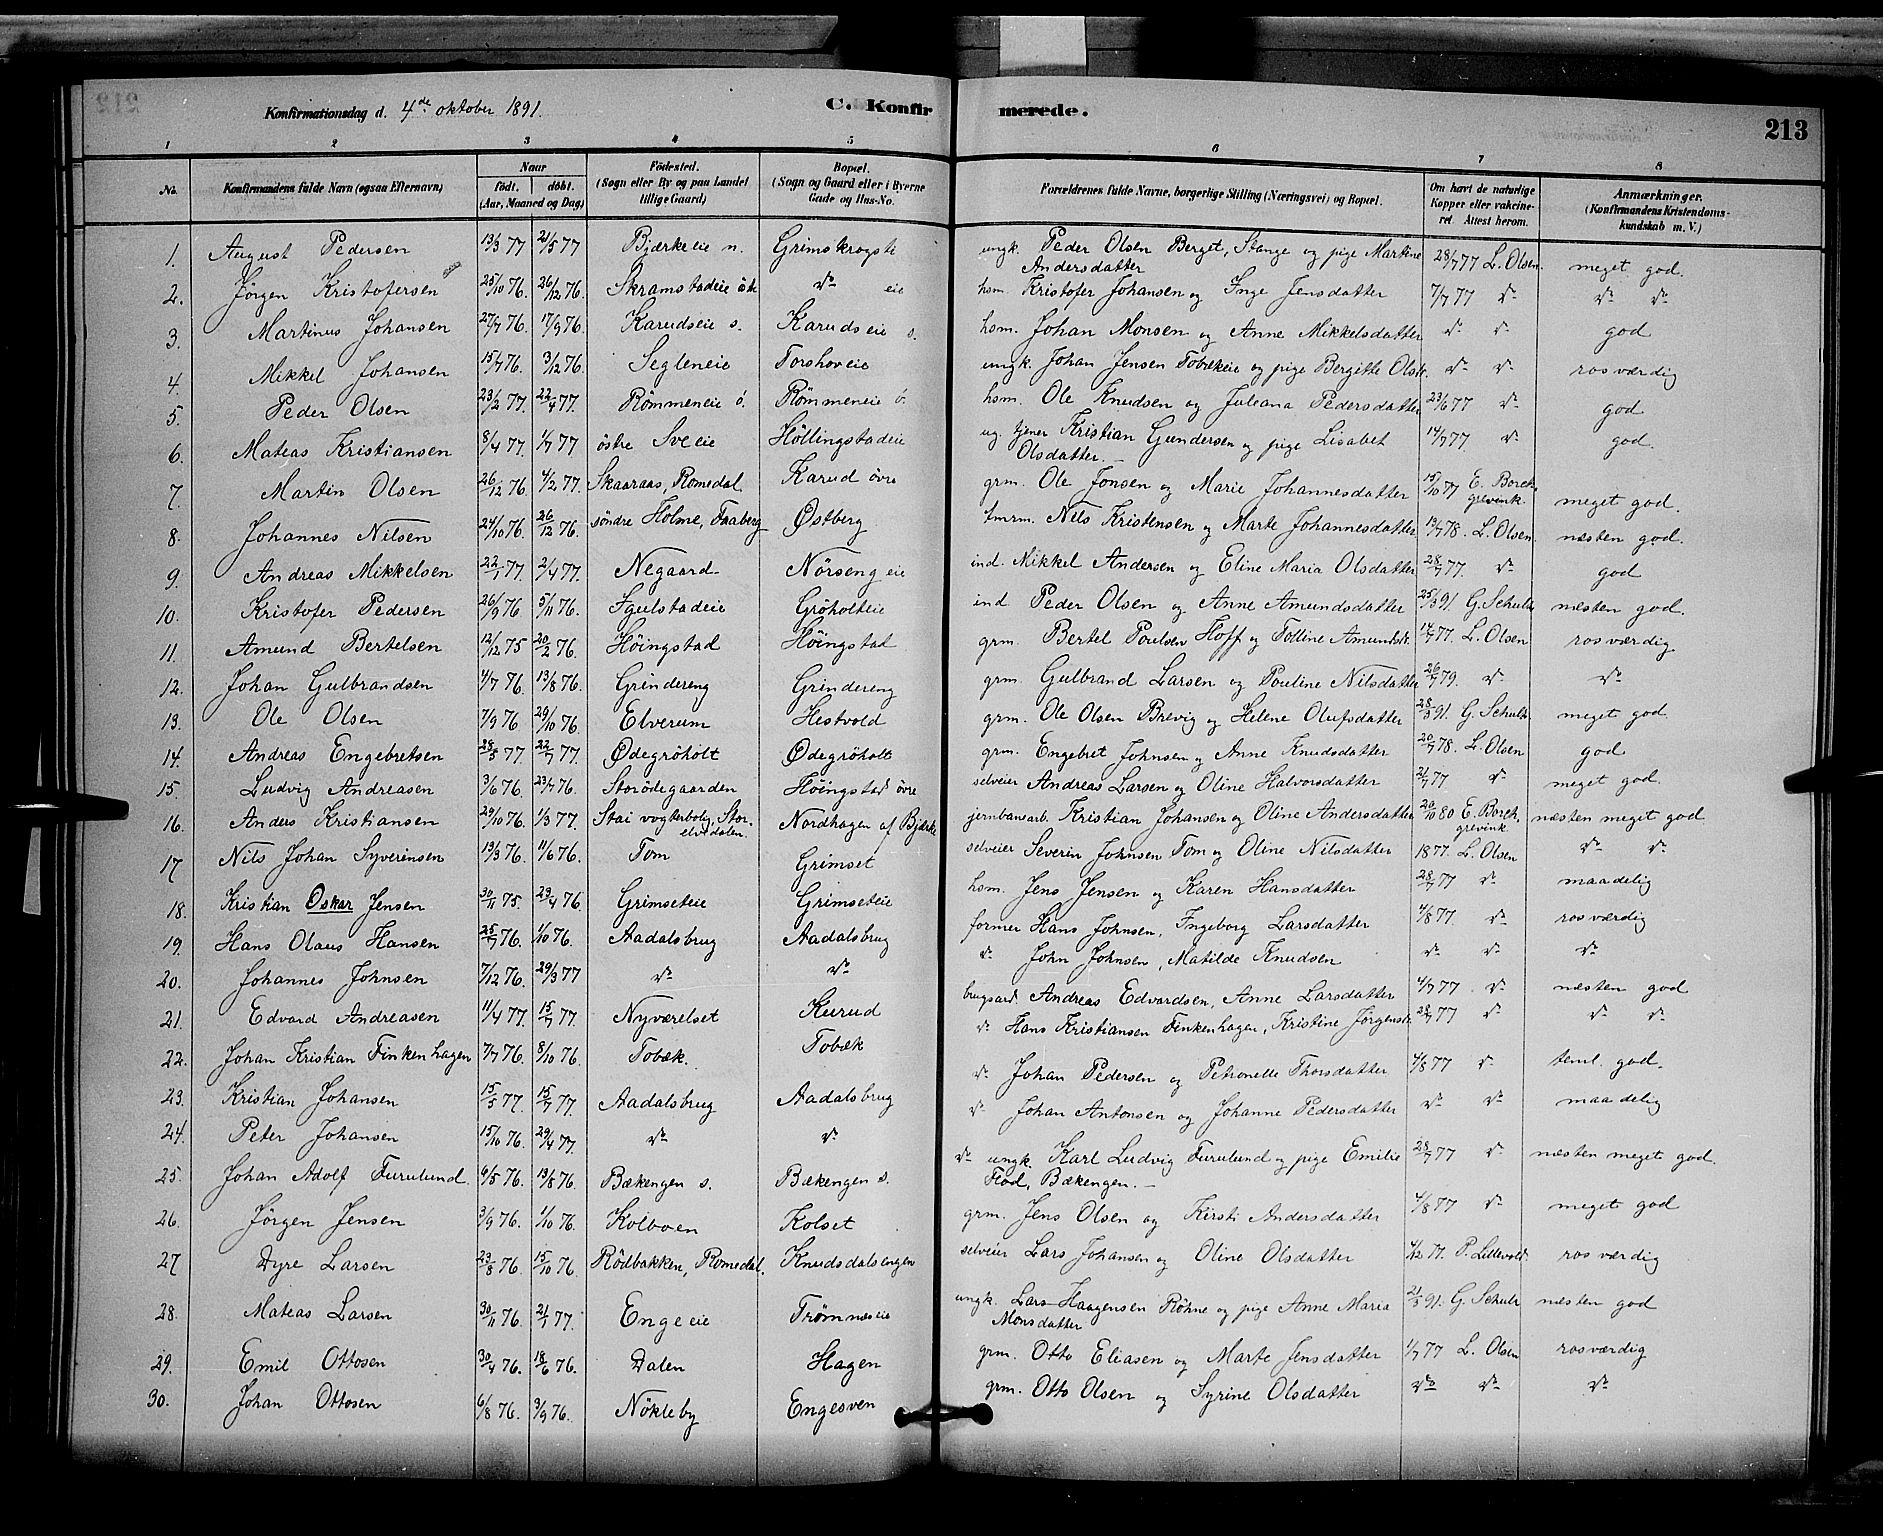 Konfirmationsdag d. 4de oktober 1891.
C. Konfirmerede.
213
1 2 3 4 5 6 7 8
No. Konfirmandens fulde Navn (ogsaa Efternavn) Naar født. døbt. (Aar, Maaned og Dag) Fødested. (Sogn eller By og paa Landet tillige Gaard) Bopæl. (Sogn og Gaard eller i Byerne Gade og Hus-No. Forældrenes fulde Navne, borgerlige Stilling (Næringsvei) og Bopæl. Om havt de naturlige Kopper eller vakcineret. Attest herom. Anmærkninger. (Konfirmandens Kristendomskundskab m. V.)
1. August Pedersen 13/3 77 21/5 77 Bjærkeeie n. Grimskrogsti ungk. Peder Olsen Berget, Stange og pige Martine Andersdatter 28/7 77 L. Olsen. meget god.
2. Jörgen Kristofersen 25/10 76. 26/12 76. Skramstadeie östr do eie hsm. Kristofer Johansen og Inge Jensdatter 7/7 77 do do do
3. Martinus Johansen 27/7 76. 17/9 76. Karudseie s. Karudseie s. hsm. Johan Monsen og Anne Mikkelsdatter do do god
4. Mikkel Johansen 15/7 76. 3/12 76. Segleneie Torshoveie ungk. Johan Jensen Tobækeie og pige Bergitte Olsdr. do do rosværdig
5. Peder Olsen 23/2 77. 22/4 77. Römmeneie ö. Römmeneie ö. hsm. Ole Knudsen og Juleana Pedersdatter 23/6 77 do god
6. Mateas Kristiansen 8/4 77 1/7 77 östre Sveeie Höllingstadeie ug. tjener Kristian Gundersen og pige Lisabet Olsdatter. 14/7 77 do god.
7. Martin Olsen 26/12 76. 4/2 77. Skaaraas, Romedal. Karud övre grm. Ole Jonsen og Marie Johannesdatter 15/10 77 E. Borchgrevink meget god.
8. Johannes Nilsen 24/10 76. 26/12 76. söndre Holme, Faaberg Østberg tmrm. Nils Kristensen og Marte Johannesdatter 13/7 78. L. Olsen. næsten god.
9. Andreas Mikkelsen 22/1 77. 2/4 77. Negaard Nörsengeie ind. Mikkel Andersen og Eline Maria Olsdatter 28/7 77. do god
10. Kristofer Pedersen 26/9 76 5/11 76. Igulstadeie Gröholteie ind Peder Olsen og Anne Amundsdatter 25/3 91. G. Schulz næsten god.
11. Amund Bertelsen 12/12 75 20/2 76. Höingstad Höingstad grm. Bertel Poulsen Hoff og Tolline Amundsdr. 14/7 77. L. Olsen rosværdig.
12. Johan Gulbrandsen 4/7 76. 13/8 76. Grindereng Grindereng grm. Gulbrand Larsen og Pouline Nilsdatter 26/7 79. do do
13. Ole Olsen 7/9 76 29/10 76. Elverum Hestvold grm. Ole Olsen Brevig og Helene Olufsdatter 28/3 91. G. Schulz meget god.
14. Andreas Engebretsen 28/5 77. 22/7 77. Ødegröholt Ødegröholt grm. Engebret Johnsen og Anne Knudsdatter 20/7 78. L. Olsen god
15. Ludvig Andreasen 3/6 76. 23/7 76. Storödegaarden Höingstad övre selveier Andreas Larsen og Oline Halvorsdatter 21/7 77 do meget god.
16. Anders Kristiansen 29/10 76. 1/3 77. Stai vogterbolig, Storelvedalen. Nordhagen af Bjærke jernbanearb. Kristian Johansen og Oline Andersdatter 20/10 80 E. Borchgrevink næsten meget god
17 Nils Johan Syverinsen 13/3 76. 11/6 76. Tom Grimset selveier Severin Johnsen Tom og Oline Nilsdatter 1877. L. Olsen do do
18. Kristian Oskar Jensen 30/11 75. 23/4 76. Grimseteie Grimseteie hsm. Jens Jensen og Karen Hansdatter 28/7 77 do maadelig
19. Hans Olaus Hansen 25/7 76. 1/10 76. Aadalsbrug Aadalsbrug former Hans Johnsen, Ingeborg Larsdatter 4/8 77. do rosværdig
20. Johannes Johnsen 7/12 76. 29/3 77 do do do John Johnsen, Matilde Knudsen do do do
21. Edvard Andreasen 11/4 77. 15/7 77. Nyværelset Kurud brugsard. Andreas Edvardsen, Anne Larsdatter 4/7 77 do næsten god
22. Johan Kristian Finkenhagen 7/7 76. 8/10 76 Tobæk. Tobæk do Hans Kristiansen Finkenhagen, Kristine Jörgensdr. 28/7 77 do do do
23. Kristian Johansen 15/5 77. 15/7 77. Aadalsbrug Aadalsbrug do Johan Pedersen og Petronelle Thorsdatter 4/8 77 do teml. god.
24. Peter Johansen 15/10 76. 29/4 77. do do do Johan Antonsen og Johanne Pedersdatter do do maadelig
25. Johan Adolf Furulund. 6/5 76. 13/8 76. Bækengen s. Bækengen s. do ungk. Karl Ludvig Furulund og pige Emilie Flod, Bækengen. 28/7 77 do næsten meget god.
26. Jörgen Jensen 3/9 76. 1/10 76. Kolboen Kolset grm. Jens Olsen og Kirsti Andersdatter 4/8 77 do meget god
27 Dyre Larsen 23/8 76. 15/10 76. Rödbakken, Romedal. Knudsdalsengen selveier Lars Johansen og Oline Olsdatter 4/12 77. P. Lillevold. rosværdig
28. Mateas Larsen 30/11 76. 21/1 77. Engeeie Trömnæseie ungk. Lars Haagensen Röhne og pige Anne Maria Monsdatter 21/3 91. G. Schulz næsten god
29. Emil Ottosen 30/4 76. 18/6 76. Dalen Hagen grm. Otto Eliasen og Marte Jensdatter 1/7 77 L. Olsen rosværdig
30. Johan Ottosen 6/8 76. 3/9 76. Nökleby Engesven grm. Otto Olsen og Syrine Olsdatter do do do